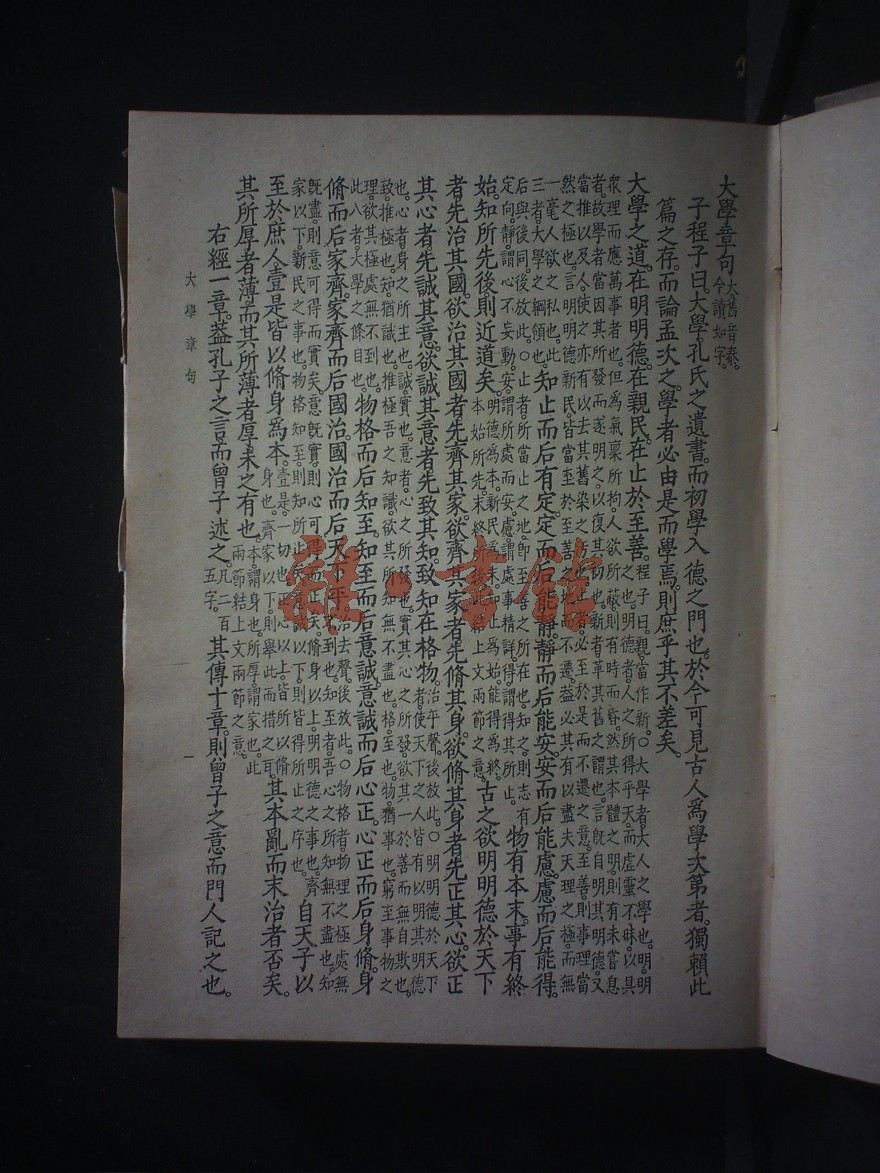 大學章句
大舊音泰。
今讀如字。
子程子曰。大學。孔氏之遺書。而初學入德之門也。於今可見古人爲學次第者。獨賴此
篇之存。而論孟次之。學者必由是而學焉。則庶乎其不差矣。
大學之道。在明明德。在親民。在止於至善。
程子曰。親當作新。○大學者。大人之學也。明。明
之也。明德者。人之所得乎天。而虛靈不昧。以具
衆理而應萬事者也。但爲氣稟所拘。人欲所蔽。則有時而昏。然其本體之明。則有未嘗息
者。故學者當因其所發而遂明之。以復其初也。新者。革其舊之謂也。言既自明其明德。又
當推以及人。使之亦有以去其舊染之也。止者。必至於是而不遷之意。至善。則事理當
然之極也。言明明德新民。皆當至於至善之地而不遷。蓋必其有以盡夫天理之極。而無
一毫人欲之私也。此
三者。大學之綱領也。
知止而后有定。定而后能靜。靜而后能安。安而后能慮。慮而后能得。
后與後同。後放此。○止者。所當止之地。即至善之所在也。知之。則志有
定向。靜。謂心不妄動。安。謂所處而安。慮。謂處事精詳。得。謂得其所止。
物有本末。事有終
始。知所先後。則近道矣。
明德爲本。新民爲末。知止爲始。能得爲終。
本始所先。末終所後。此結上文兩節之意。
古之欲明明德於天下
者。先治其國。欲治其國者。先齊其家。欲齊其家者。先脩其身。欲脩其身者。先正其心。欲正
其心者。先誠其意。欲誠其意者。先致其知。致知在格物。
治平聲。後放此。○明明德於天下
者。使天下之人。皆有以明其明德
也。心者。身之所主也。誠。實也。意者。心之所發也。實其心之所發。欲其一於善而無自欺也。
致。推極也。知。猶識也。推極吾之知識。欲其所知無不盡也。格。至也。物。猶事也。窮至事物之
理。欲其極處無不到也。
此八者。大學之條目也。
物格而后知至。知至而后意誠。意誠而后心正。心正而后身脩。身
脩而后家齊。家齊而后國治。國治而后天下平。
治去聲。後放此。○物格者。物理之極處無
不到也。知至者。吾心之所知無不盡也。知
既盡。則意可得而實矣。意既實。則心可得而正矣。脩身以上。明明德之事也。齊
家以下。新民之事也。物格知至。則知所止矣。意誠以下。則皆得所止之序也。
自天子以
至於庶人。壹是皆以脩身爲本。
壹是。一切也。正心以上。皆所以脩
身也。齊家以下。則舉此而措之耳。
其本亂而末治者否矣。
其所厚者薄。而其所薄者厚。未之有也。
本。謂身也。所厚。謂家也。此
兩節結上文兩節之意。
右經一章。蓋孔子之言。而曾子述之。
凡二百
五字。
其傳十章。則曾子之意而門人記之也。
大學章句
一
雜·書館